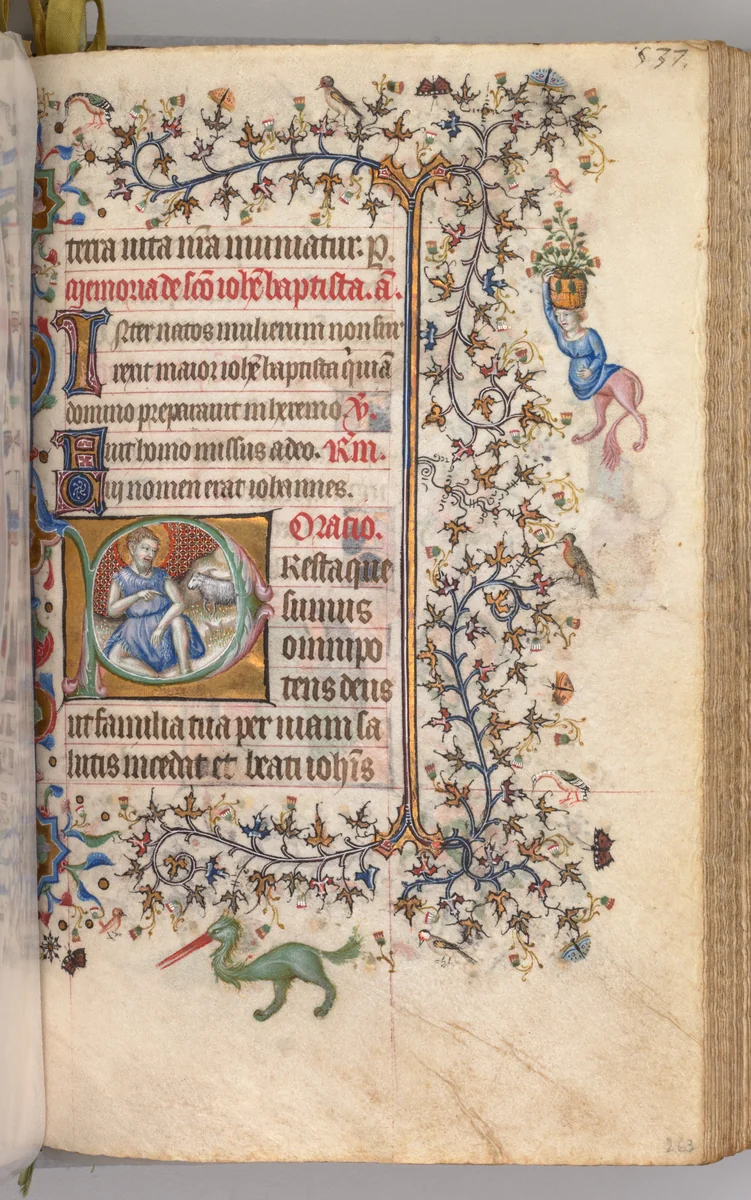 537.
terra uita nr̄a muniatur. p.
Memoria de sc̄o ioh̄e baptista. an̄.
Inter natos mulierum non sur
rexit maior ioh̄e baptista qui uiā
domino preparauit in heremo. V̄.
Fuit homo missus a deo. Rm̄.
Cui nomen erat iohannes.
Oratio.
Presta que
sumus
omnipo
tens deus
ut familia tua per uiam sa
lutis incedat et beati ioh̄is
263